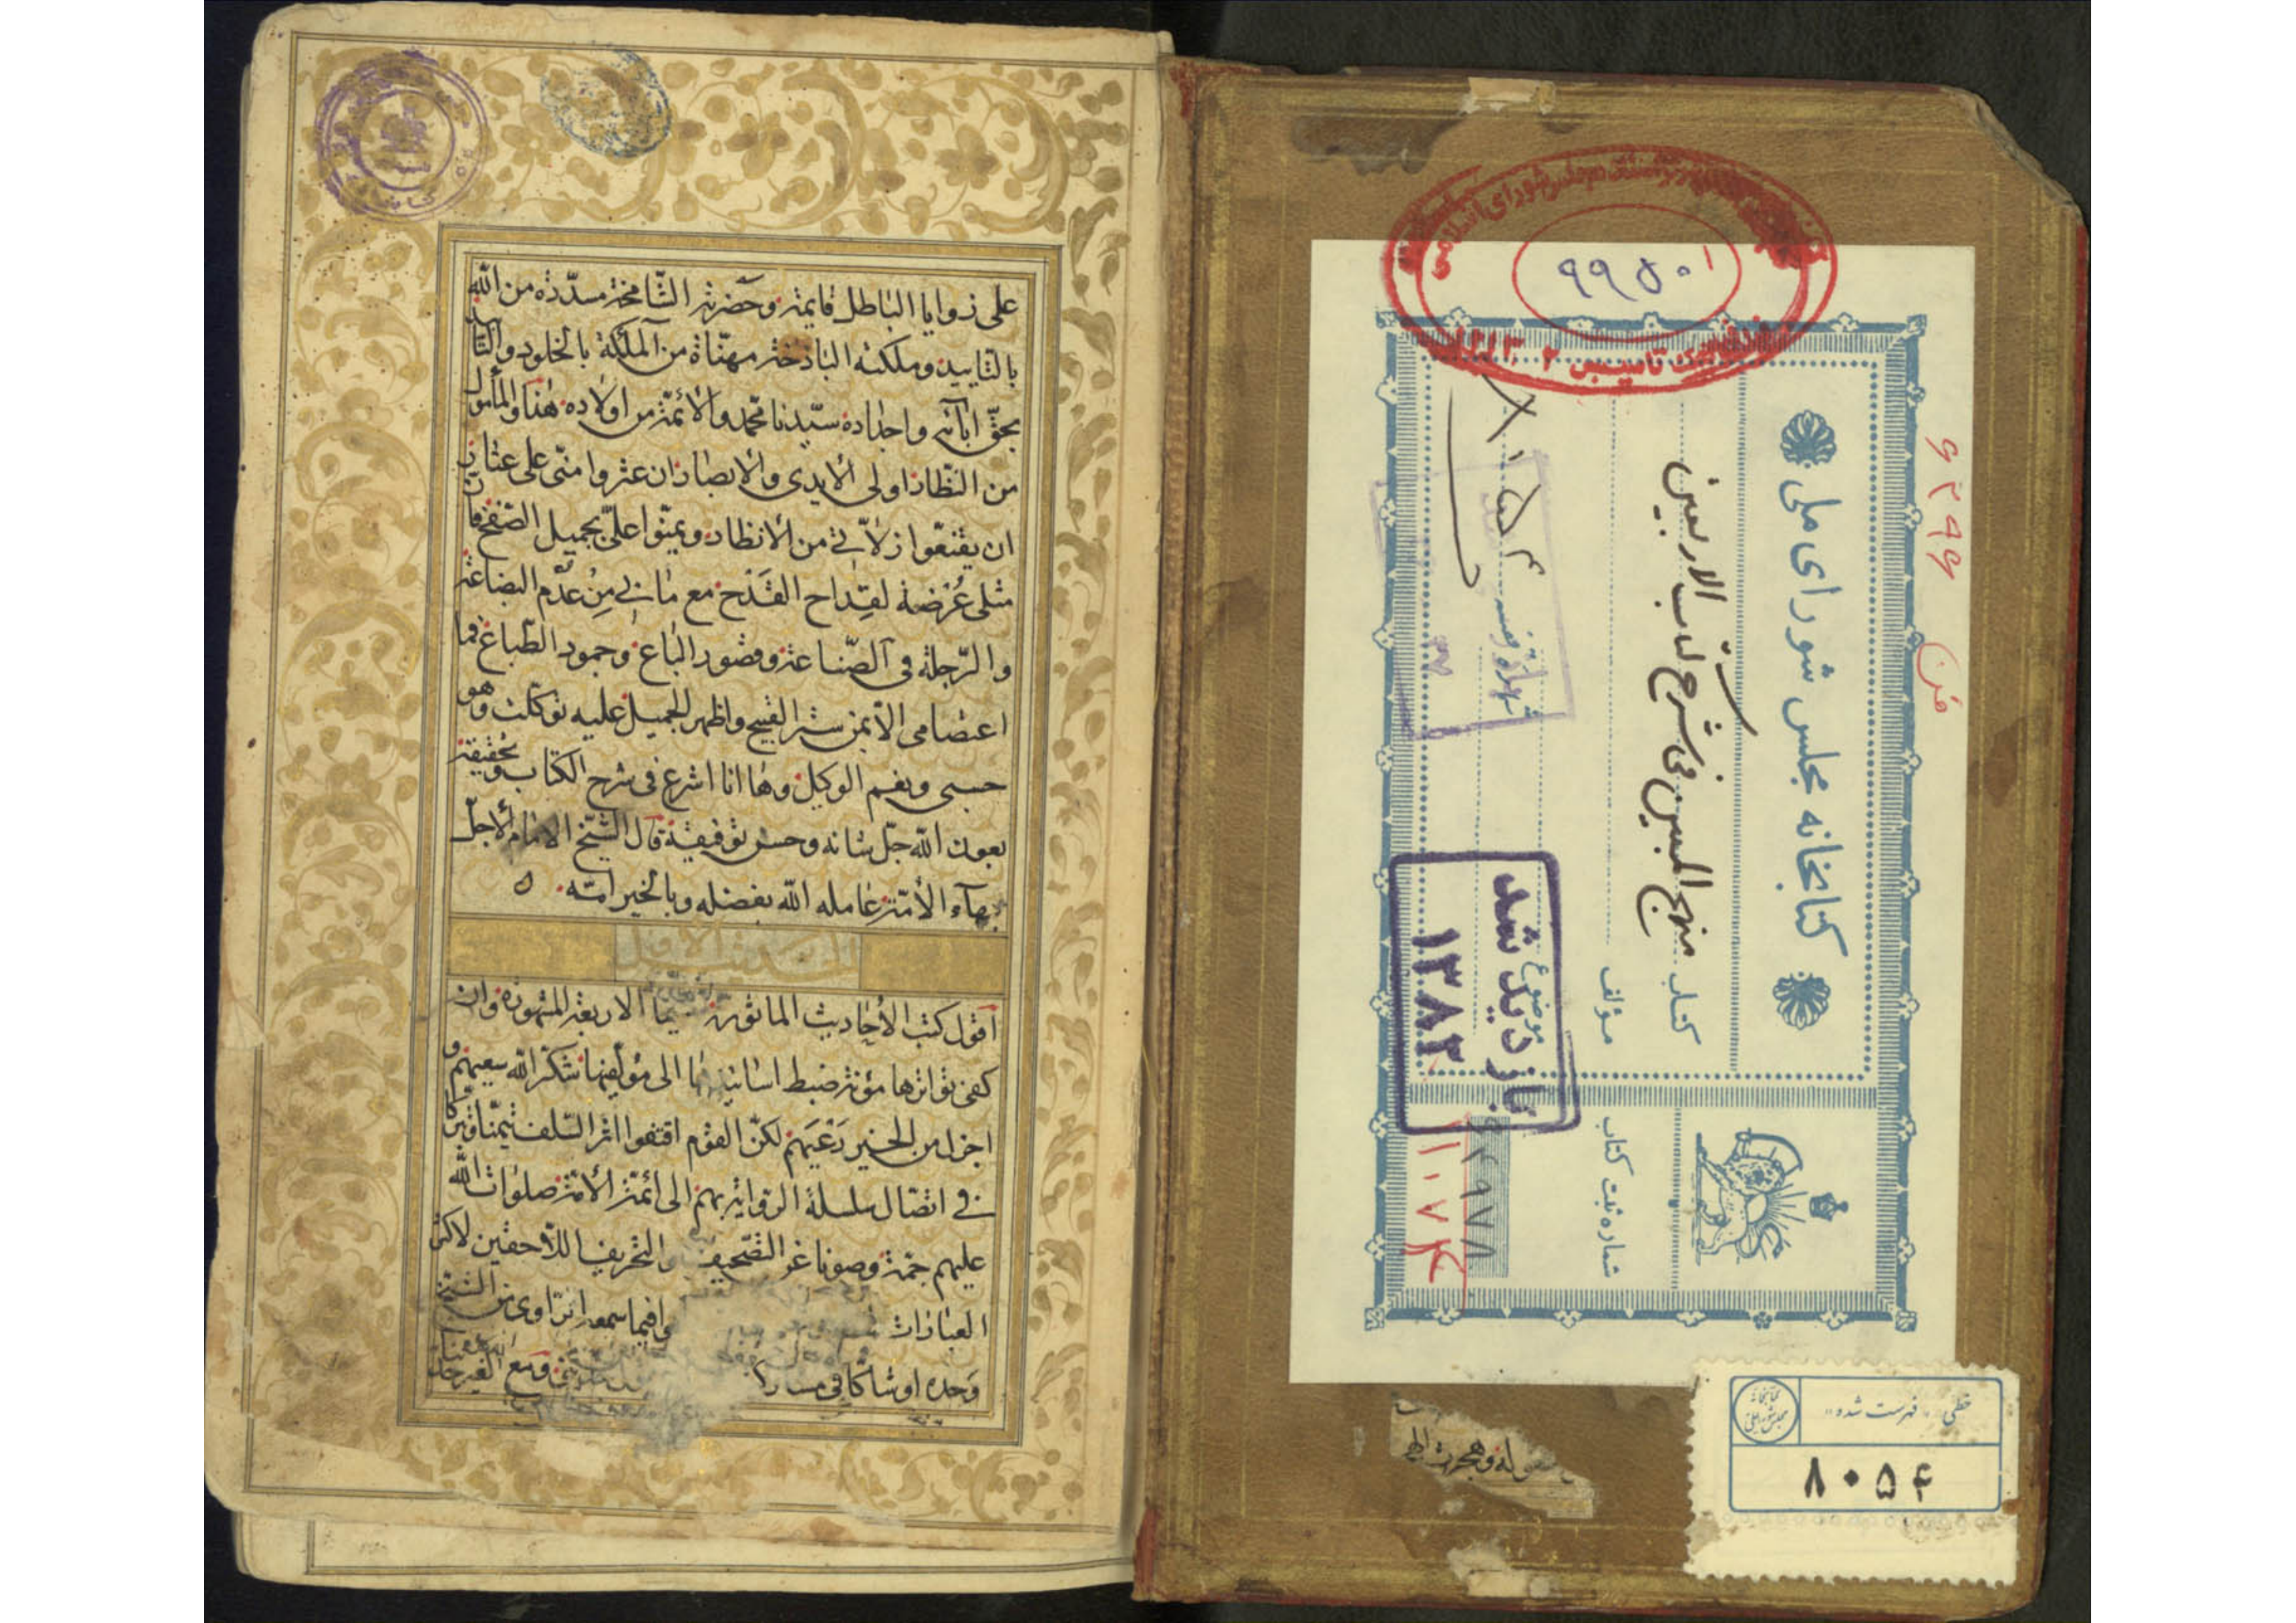 على زوايا الباطل قايمة وحضرته الشامخة مسدّدة من الله
بالتاييد ومملكته الباذخة مهنّاة من الملٰئكة بالخلود والتأبيد
بحقّ آبآئه واجداده سيّدنا محمّد والأئمّة من اولاده هذا والمأمول
من النظّار اولى الأيدى والابصار ان عثروا منّى على عثار
ان يقنعوا زلاّتي من الانظار ويمنّوا علىّ بجميل الصّفح فانّ
مثلى عُرضة لقِداح القَدْح مع مابي مِن عدم البضاعة
والرّجلة فى الصّناعة وقصور الباع وجمود الطّباع فما
اعتصامى الاّ بمن ستر القبيح واظهر الجميل عليه توكّلت وهو
حسبى ونعم الوكيل وها انا اشرع فى شرح الكتاب وتحقيقه
بعون الله جلّ شانه وحسن توفيقه قال الشّيخ الامام الأجلّ
بهآء الأمّة عامله الله بفضله وبالخير امّه
الحديث الاول
اقول كتب الأحاديث الماثورة سيما الاربعة المشهورة وان
كفى تواترها مؤنة ضبط اسانيدها الى مؤلّفيها شكر الله سعيهم و
اجزل من الخير رَعْيَهم لكنّ القوم اقتفوا اثر السّلف تيمّنا وتبركا
في اتّصال سلسلة الرّواية بهم الى ائمّة الأمّة صلوات الله
عليهم جمّة وصونا عن التّصحيف والتحريف اللاّحقين لاكثر
العبارات فيما سمعه الرّاوى من الشيخ
وحده او شاكّا فى مع الغير
کتابخانه مجلس شورای ملی
کتاب منهج المبين فى شرح كتاب الاربعين
مؤلف
موضوع
شماره قفسه
شماره ثبت کتاب
بازدید شد
۱۳۸۲
مجلس شورای اسلامی
تاسیس ۱۳۰۲
خطی «فهرست شده»
۸۰۵۴